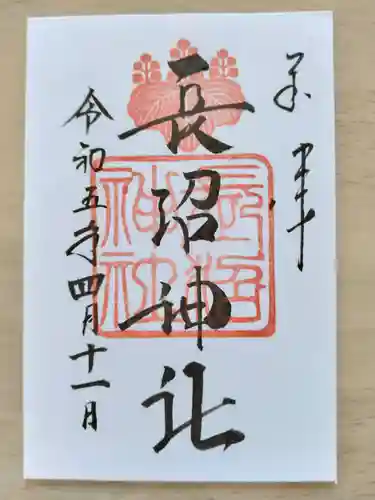 奉拝
長沼神社
令和五年四月十一日
長沼神社